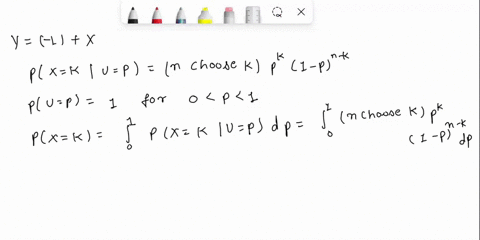 Y = (-1) + X
P(X=K | U=P) = (n choose K) p^K (1-p)^{n-K}
P(U=P) = 1 for 0 < p < 1
P(X=K) = ∫_0^1 P(X=K | U=P) dp = ∫_0^1 (n choose K) p^K
(1-p)^{n-K} dp